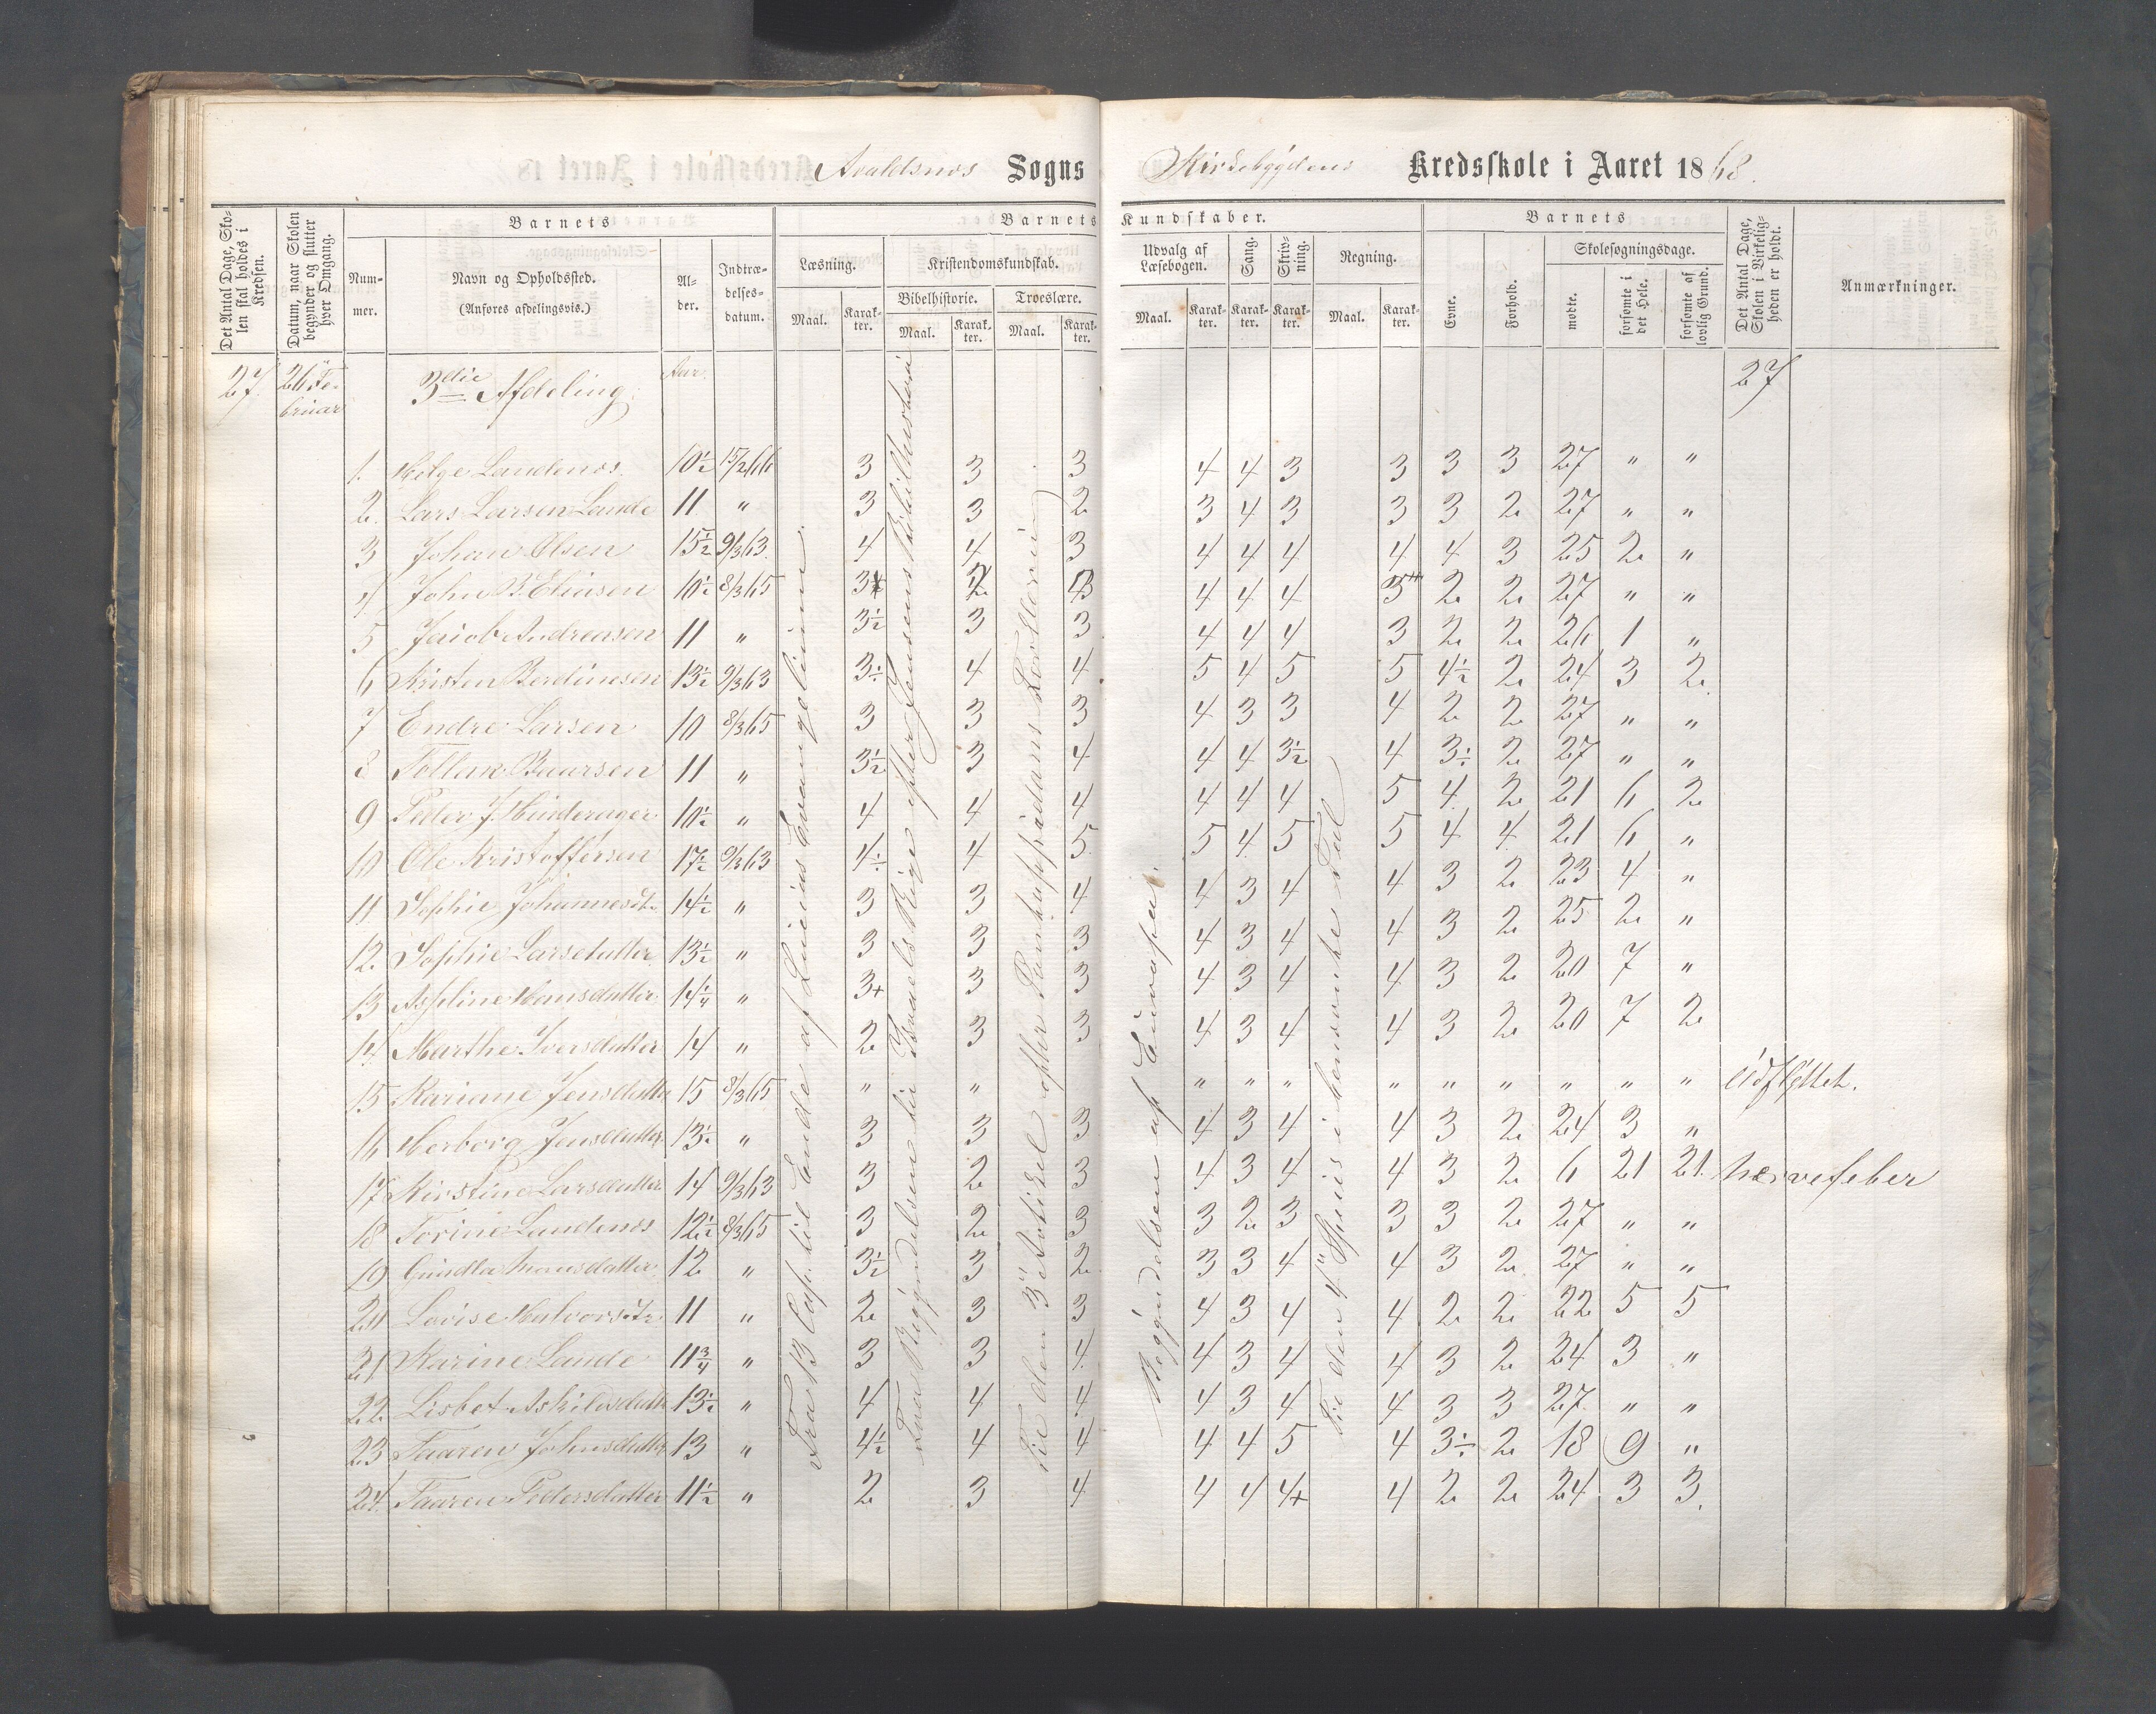 Avaldsnes Sogns Kirkebygdens Kredsskole i Aaret 1868.
Det Antal Dage, Skolen skal holdes i Kredsen.
Datum, naar Skolen begynder og slutter hver Omgang.
Barnets
Nummer.
Navn og Opholdssted.
(Anføres afdelingsvis.)
Alder.
Indtrædelsesdatum.
Barnets Kundskaber.
Læsning.
Maal.
Karakter.
Kristendomskundskab.
Bibelhistorie.
Maal.
Karakter.
Troeslære.
Maal.
Karakter.
Udvalg af Læsebogen.
Maal.
Karakter.
Sang.
Karakter.
Skrivning.
Karakter.
Regning.
Maal.
Karakter.
Barnets
Evne.
Forhold.
Skolesøgningsdage.
mødte.
forsømte i det Hele.
forsømte af lovlig Grund.
Det Antal Dage, Skolen i Virkeligheden er holdt.
Anmærkninger.
27. 26 Februar 3die Afdeling. Aar. 27
1. Helge Landenæs. 10½ 15/2 66 3 3 3 4 4 3 3 3 3 27 " "
2. Lars Larsen Lande 11 " 3 3 2 3 4 3 3 3 2 27 " "
3 Johan Olsen 15½ 9/3 63. 4 4 3 4 4 4 4 4 3 25 2 "
4 John B. Eliasen 10½ 8/3 65 3 2 3 4 4 4 3 2 2 27 " "
5 Jacob Andreasen 11 " 3½ 3 3 4 4 4 3 2 2 26 1 "
6 Kristen Berdinesen 13½ 9/3 63 3÷ 4 4 5 4 5 5 4½ 2 24 3 2
7 Endre Larsen 10 8/3 65 3 3 3 4 3 3 4 2 2 27 " "
8 Tollak Baarsen 11 " 3½ 3 4 4 4 3½ 4 3÷ 2 27 " "
9 Peder J. Hinderager 10½ " 4 4 4 4 4 4 5 4 2 21 6 2
10 Ole Kristoffersen 17½ 9/3 63 4÷ 4 5 5 4 5 5 4 4 21 6 "
11 Sophie Johannesdtr 14½ " 3 3 4 4 3 4 4 3 2 23 4 "
12. Sophie Larsdatter 13½ " 3 3 3 4 3 4 4 3 2 25 2 "
13 Aspline Hansdatter 14¼ " 3+ 3 3 4 3 4 4 3 2 20 7 "
14. Marthe Iversdatter 14 " 2 3 3 4 3 4 4 3 2 20 7 2
15 Kariane Jensdatter 15 8/3 65 " " " " " " " " " " " udflyttet.
16 Herborg Jensdatter 13½ " 3 3 3 4 3 4 4 3 2 24 3 "
17 Kirstine Larsdatter 14 9/3 63 3 2 3 4 3 4 4 3 2 6 21 21. nervefeber
18 Torine Landenæs 12½ 8/3 65 3 2 3 3 2 3 3 3 2 27 " "
19 Gundla Monsdatter 12 " 3½ 3 2 3 3 4 4 3 2 27 " "
20 Lovise Halvorsdtr 11 " 2 3 3 4 3 4 4 2 2 22 5 5
21 Karine Lande 11¾ " 3 3 4 4 3 4 4 3 2 24 3 "
22 Lisbet Askildsdatter 13½ " 4 4 4 4 3 4 4 3 3 27 " "
23 Taaren Johnsdatter 13 " 4½ 4 4 4 4 5 4 3÷ 2 18 9 "
24. Taaren Pedersdatter 11½ " 2 3 4 4 4 4+ 4 2 2 24 3 3.
Fra 13 Cap. til Ende af Lucius Evangelium.
Fra Begyndelsen til Israels Rige efter Jensens Bibelhistorie
Til den 3" Artikel efter Pontoppidans Forklaring
Begyndelsen af Europa.
Til den 4" Species i benævnte Tal